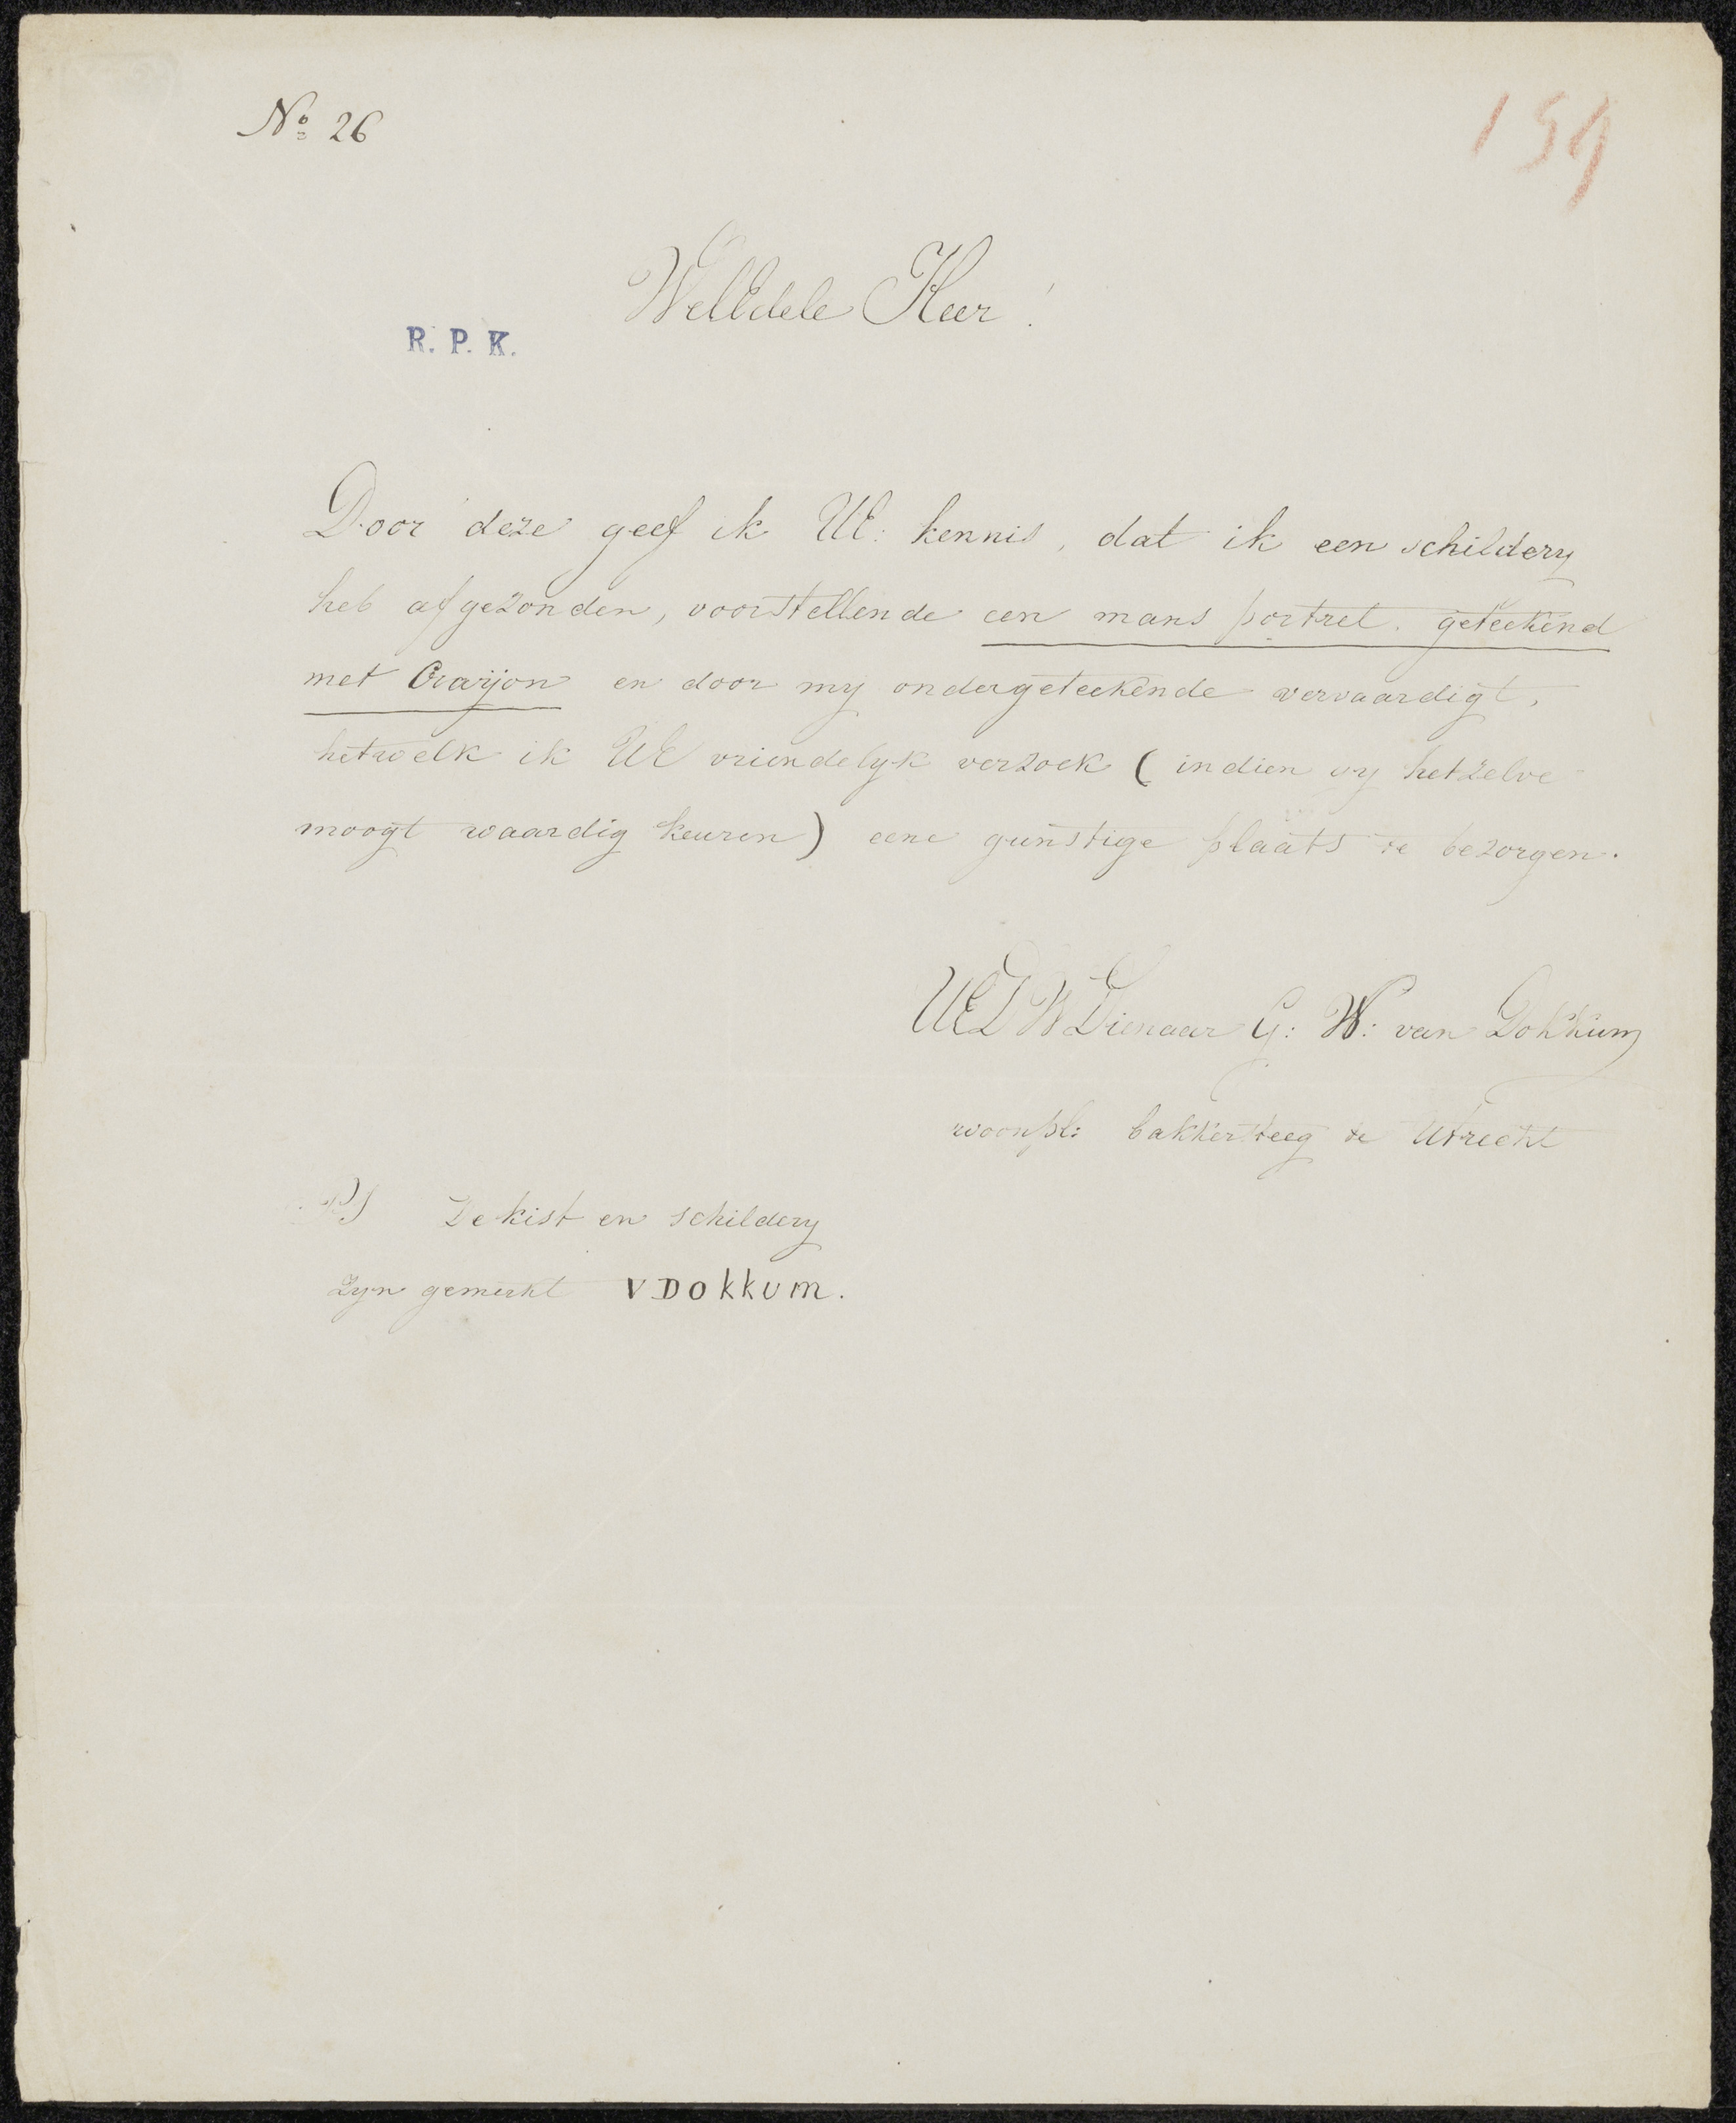 No 26
159
WelEdele Heer!
R. P. K.
Door deze geef ik UE: kennis, dat ik een schildery
heb afgezonden, voorstellende een mans portret. geteekend
met Craijon en door my ondergeteekende vervaardigt,
hetwelk ik UE vriendelyk verzoek (indien gy hetzelve
moogt waardig keuren) eene gunstige plaats te bezorgen.
UEDW Dienaar G: W: van Dokkum
woonpl: bakkersteeg te Utrecht
PS De kist en schildery
zyn gemerkt V DOKKUM.